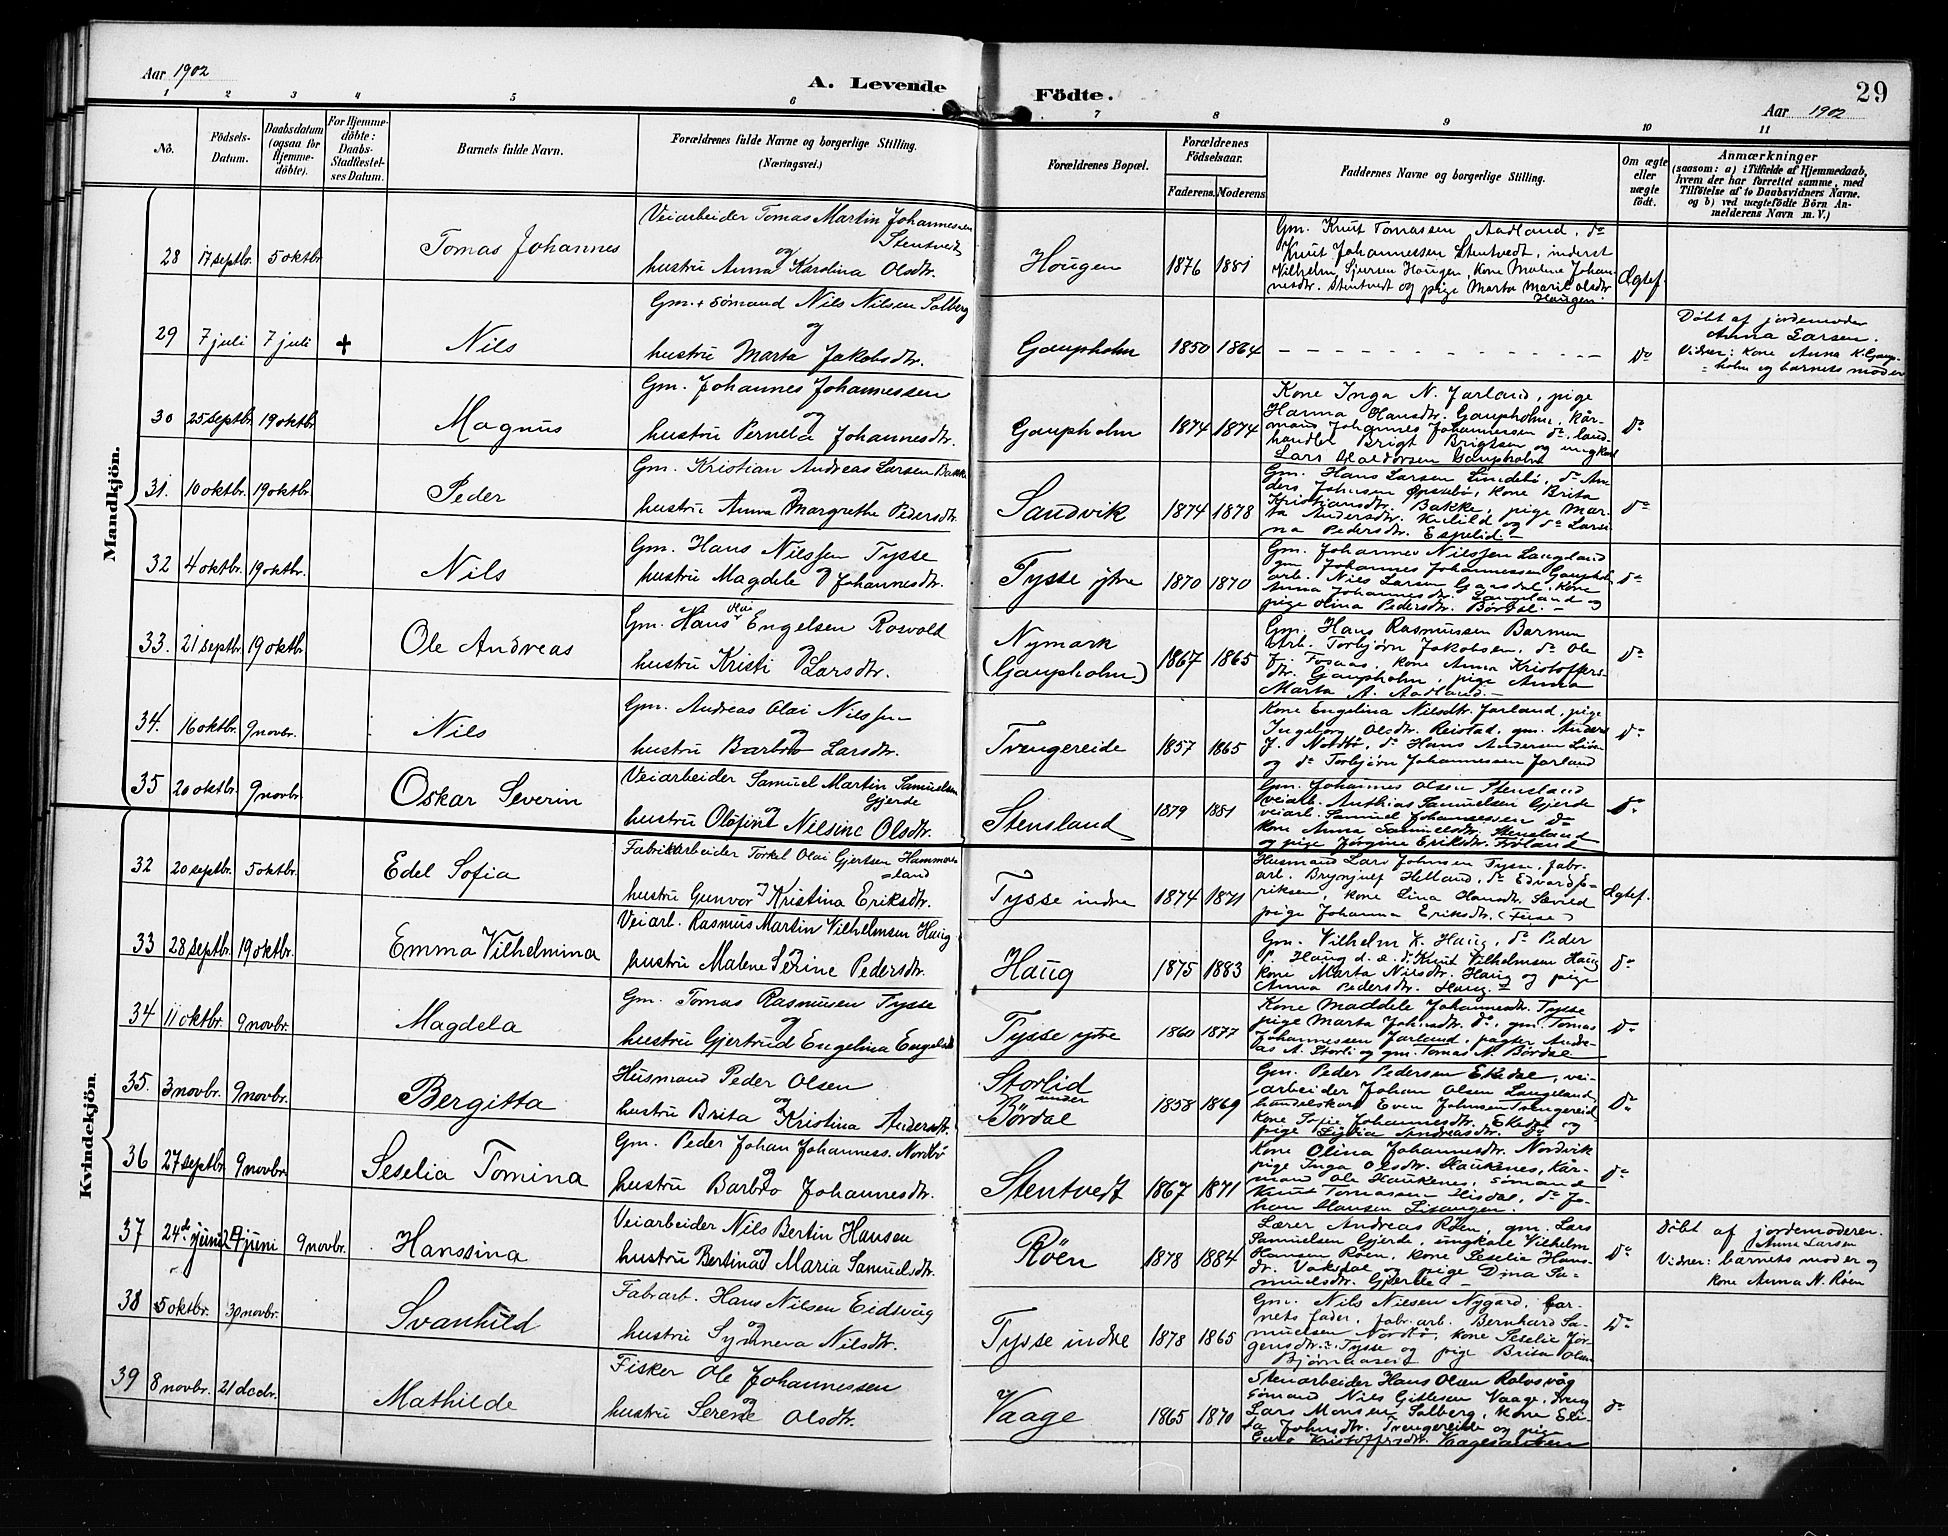 Aar 1902
A. Levende Födte.
29
Aar 1902
1 2 3 4 5 6 7 8 9 10 11
Nö.
Födsels-Datum.
Daabsdatum (ogsaa for Hjemmedöbte).
For Hjemmedöbte: Daabs-Stadfæstelses Datum.
Barnets fulde Navn.
Forældrenes fulde Navne og borgerlige Stilling.
(Næringsvei.)
Forældrenes Bopæl.
Forældrenes Födselsaar.
Faderens. Moderens.
Faddernes Navne og borgerlige Stilling.
Om ægte eller uægte födt.
Anmærkninger
(saasom: a) i Tilfælde af Hjemmedaab, hvem der har forrettet samme, med Tilföielse af to Daabsvidners Navne, og b) ved uægtefödte Börn Anmelderens Navn m. V.)
Mandkjön.
28 17 septbr. 5 oktbr. Tomas Johannes
Veiarbeider Tomas Martin Johannessen Stentvedt
og
hustru Anna Karolina Olsdtr.
Hougen 1876 1881
Gm. Knut Tomassen Aadland, do
Knut Johannessen Stentvedt, inderst
Vilhelm Sjursen Hougen, kone Malene Johan-
nesdtr. Stentvedt og pige Marta Marie Olsdtr.
Haugen.
Ægtef.
29 7 juli 7 juli + Nils
Gm. + Sømand Nils Nilsen Solberg
og
hustru Marta Jakobsdtr.
Gaupholm 1850 1864
do
Døbt af jordemoder
Anna Larsen.
Vidner: kone Anna K. Gaup-
holm og barnets moder
30 25 septbr 19 oktbr Magnus
Gm. Johannes Johannessen
og
hustru Pernela Johannesdtr.
Gaupholm 1874 1874
Kone Inga N. Jarland, pige
Hanna Hansdtr. Gaupholm, kår-
mand Johannes Johannessen do, land-
handler Brigt Brigtsen og ungkarl
Lars Haldorsen Gaupholm
do
31. 10 oktbr. 19 oktbr. Peder
Gm. Kristian Andreas Larsen Bakke
og
hustru Anna Margrethe Pedersdtr.
Sandvik 1874 1878
Gm. Hans Larsen Lindebø, do An-
ders Johnsen Øpsebø, kone Brita
Kristiansdtr. Bakke, pige Mar-
ta Andersdtr. og do Lari-
na Pedersdtr. Espelid.
do
32 4 oktbr. 19 oktbr. Nils
Gm. Hans Nilssen Tysse
og
hustru Magdele Johannesdtr.
Tysse ytre 1870 1870
Gm. Johannes Nilssen Langeland
gm Johannes Johannessen Gauphol
arb. Nils Larsen Gaasdal, kone
Anna Johannesdtr. Langeland og
pige Olina Pedersdtr. Børdal.
do
33. 21 septbr. 19 oktbr Ole Andreas
Gm. Hans Olai Engelsen Rosvold
og
hustru Kristi Larsdtr.
Nymark
(Gaupholm) 1867 1865
Gm. Hans Rasmussen Barmen
Arb. Torbjørn Jakobsen, do Ole
J. Fosaas, kone Anna Kristoffers-
dtr. Gaupholm, pige Anna
Marta A. Aadland.
do
34. 16 oktbr. 9 novbr. Nils
Gm. Andreas Olai Nilssen
og
hustru Barbro Larsdtr.
Trengereide 1857 1865
Kone Engelina Nilsdtr. Jarland, pige
Ingeborg Olsdtr. Reistad, gm. Anders
J. Nordbø, do Hans Andersen
og do Torbjørn Johannessen Jarland
do
35 20 oktbr. 9 novbr. Oskar Severin
Veiarbeider Samuel Martin Samuelsen
Gjerde
og
hustru Olofine Nilsine Olsdtr.
Stensland 1879 1881
Gm. Johannes Olsen Stensland
veiarb. Anthias Samuelsen Gjerde
veiarb. Samuel Johannessen do
kone Anna Samuelsdtr. Stensland
og pige Jørgine Eriksdtr. Førland
do
Kvindekjön.
32 20 septbr. 5 oktbr. Edel Sofia
Fabrikarbeider Torkel Olai Gjertsen Hammers-
land
og
hustru Gunvor Kristina Eriksdtr.
Tysse indre 1874 1871
Husmand Lars Johnsen Tysse, fabr.
arb. Brynjulf Helland, do Edvard E-
riksen, kone Lina Hansdtr. Sævild
pige Johanna Eriksdtr. (Fuse)
Ægtef.
33 28 septbr. 19 oktbr. Emma Vilhelmina
Veiarb. Rasmus Martin Vilhelmsen Haug
og
hustru Malene Serine Pedersdtr.
Haug 1875 1883
Gm. Vilhelm K. Haug, do Peder
P. Haug d. e. do Knut Vilhelmsen Haug
kone Marta Nilsdtr. Haug og pige
Anna Pedersdtr. Haug.
do
34 11 oktbr. 9 novbr. Magdela
Gm. Tomas Rasmusen Tysse
og
hustru Gjertrud Engelina Engelsdtr
Tysse ytre 1860 1877
Kone Maddele Johannesdtr. Tysse
pige Marta Johnsdtr. do, gm. Tomas
Johannessen Jarland, pagter Andre-
as A. Storli og gm. Tomas N. Børdal
do
35. 3 novbr. 9 novbr. Bergitta
Husmand Peder Olsen
og
hustru Brita Kristina Andersdtr.
Storlid
under
Børdal 1858 1869
Gm. Peder Pedersen Ekedal, vei-
arbeider Johan Olsen Langeland,
handelskar Even Johnsen Trengereid
kone Sofie Johannesdtr. Ekedal og
pige Andreasdtr. do
do
36 27 septbr 9 novbr. Seselia Tomina
Gm. Peder Johan Johanness. Nordbø
og
hustru Barbro Johannesdtr.
Stentvedt 1867 1871
Kone Olina Johannesdtr. Nordvik
pige Inga Olsdtr. Haukenes, kår-
mand Ole Haukenes, sømand
Knut Tomassen Hisdal, do Jo-
han Hansen
do
37 24de juni 24 juni 9 novbr. Hanssina
Veiarbeider Nils Bertin Hansen
og
hustru Bertina Maria Samuelsdtr.
Røen 1878 1884
Lærer Andreas Røen, gm. Lars
Samuelsen Gjerde, ungkarl Vilhelm
Hansen Røen, kone Seselia Hans-
dr. Vaksdal og pige Dina Sa-
muelsdtr. Gjerde
do
Døbt af jordemoderen
Anna Larsen
Vidner: barnets moder og
kone Anna N. Røen
38 5 oktbr. 30 novbr. Svanhild
Fabr.arb. Hans Nilsen Eidsvåg
og
hustru Synneva Nilsdtr.
Tysse indre 1878 1865
Gm. Nils Nilsen Nygard, bar-
nets fader, fabr.arb. Bernhard Sa-
muelsen Nordbø, kone Seselie Jør-
gensdtr. i Tysse og pige Brita Olsen
Bjørnaaseid
do
39 8 novbr. 21 decbr. Mathilde
Fisker Ole Johannessen
og
hustru Serene Olsdtr.
Vaage 1865 1870
Stenarbeider Hans Olsen Rolvsvåg
sømand Nils Gitlesen Vaage, dreng
Lars Monsen Solberg, kone Eli-
da Johnsdtr. Trengereide og pige
Guro Kristoffersdtr. Vaagesanden
do